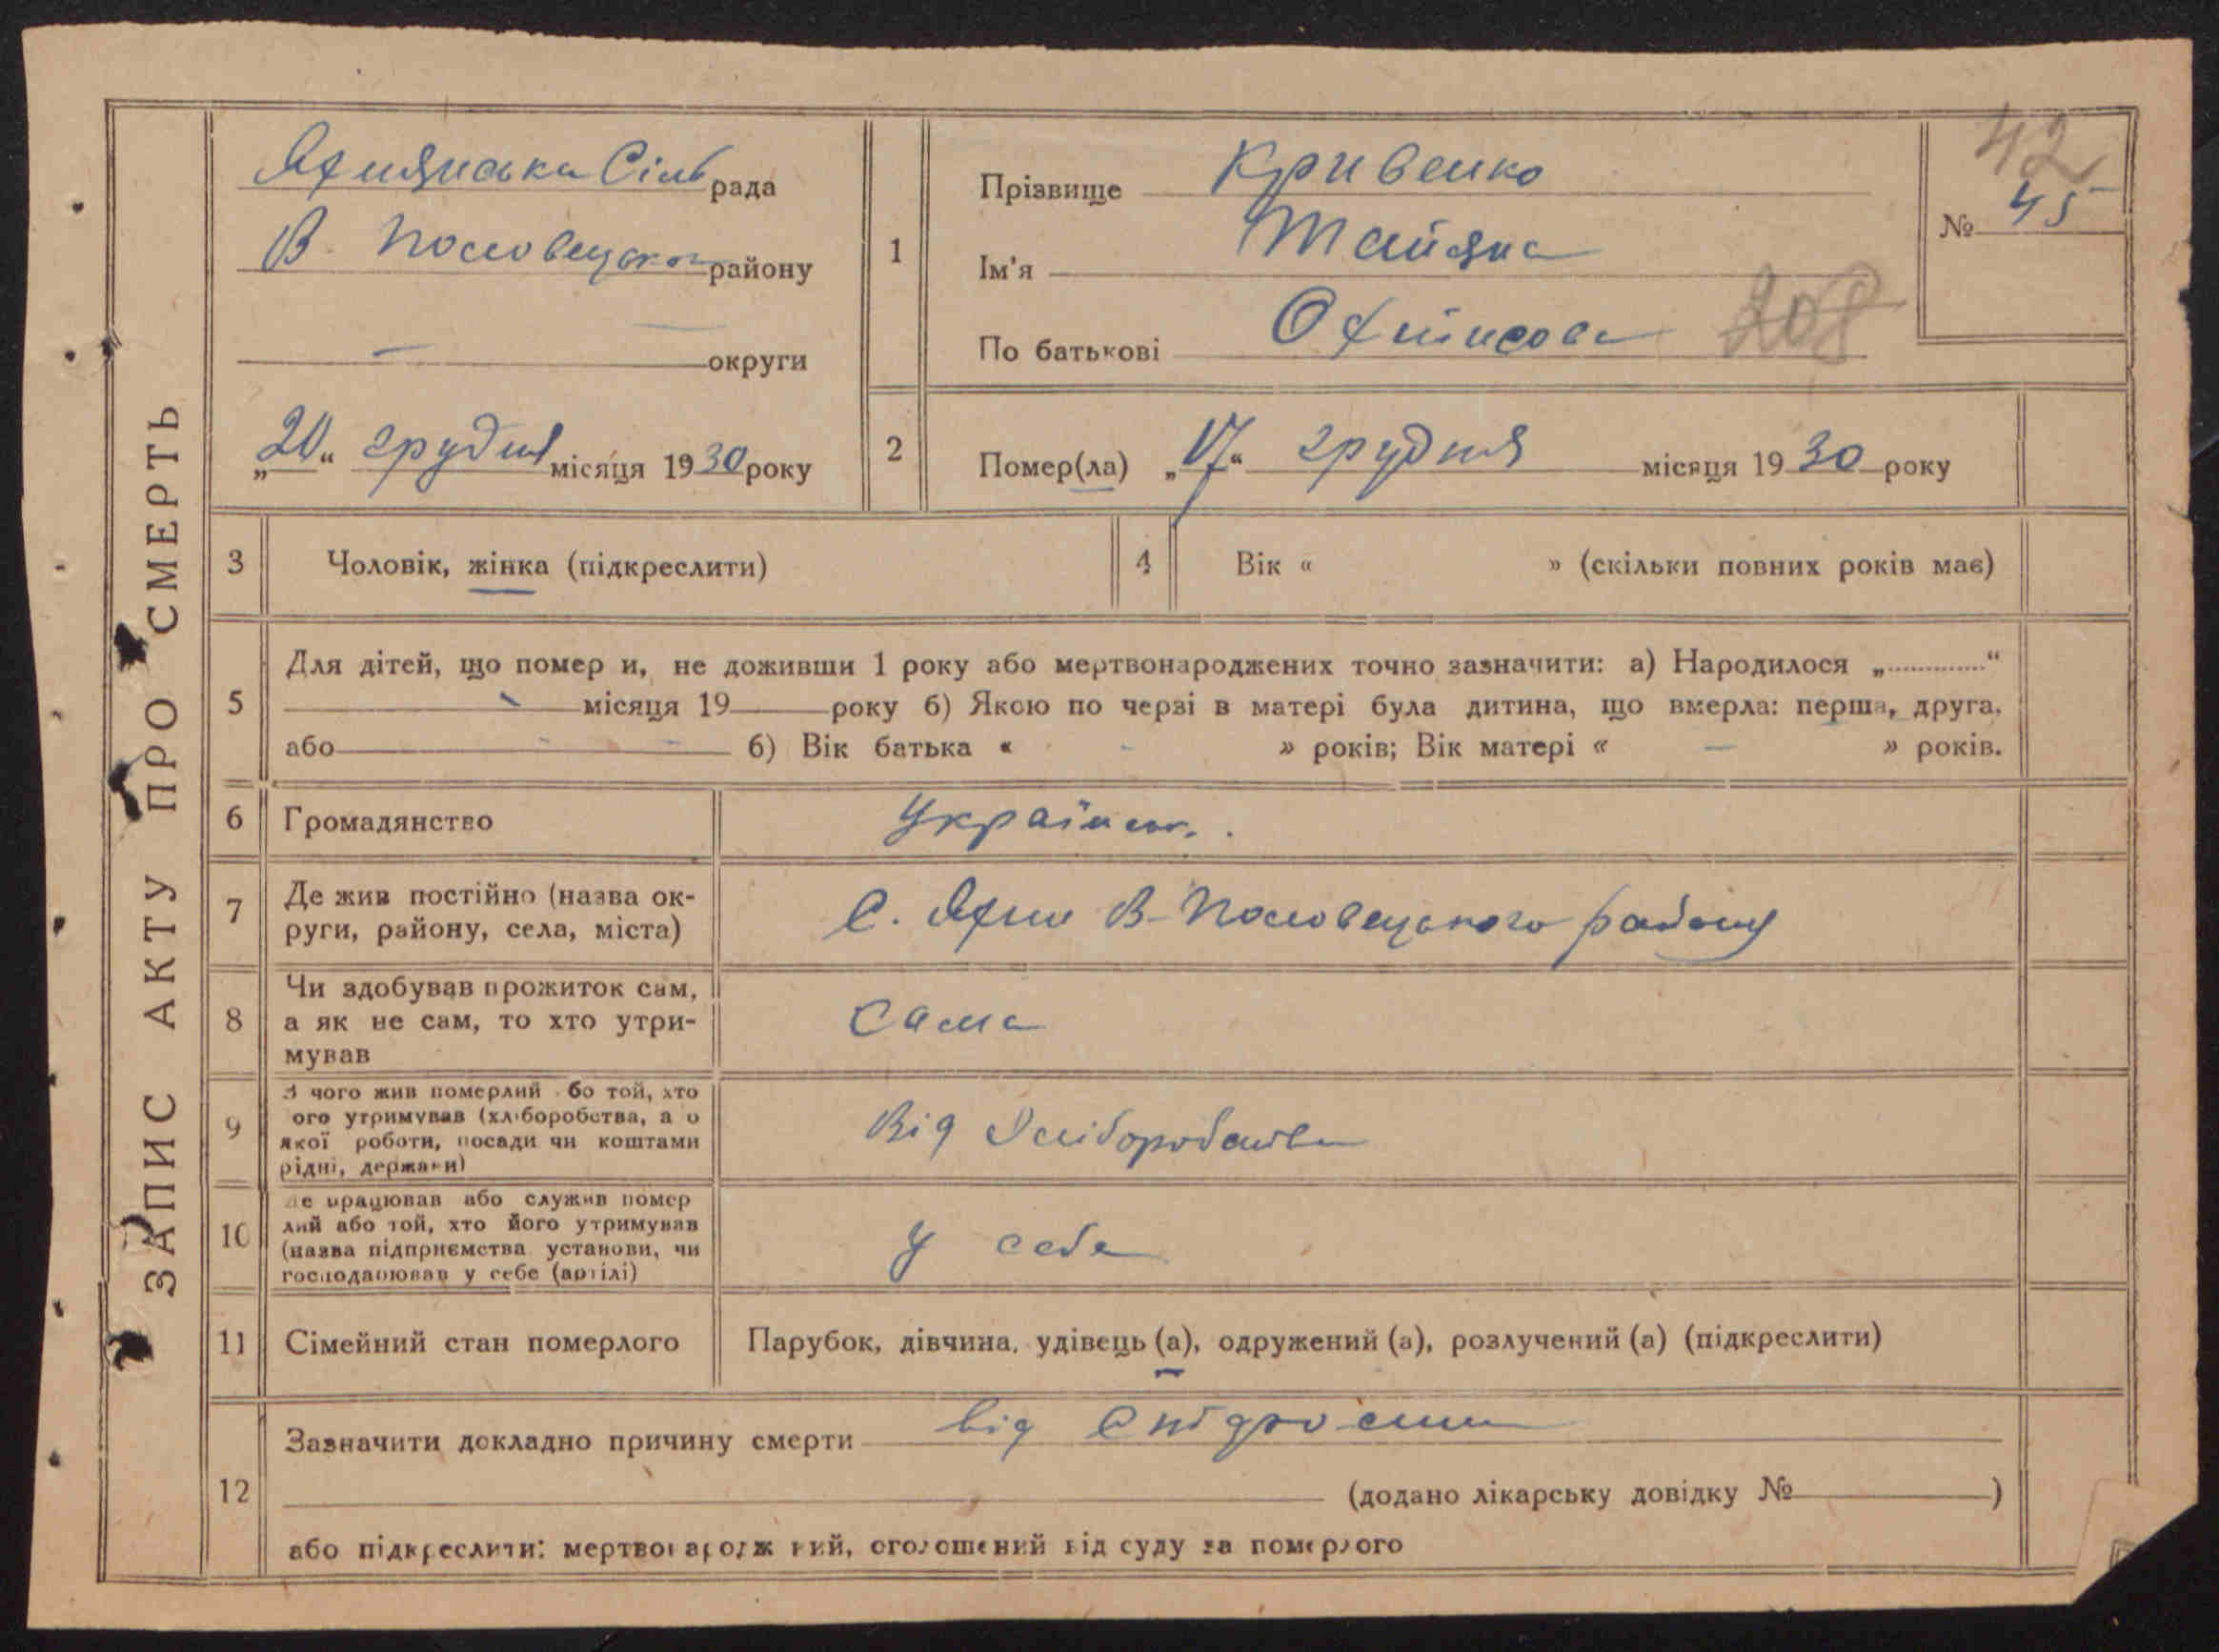 ЗАПИС АКТУ ПРО СМЕРТЬ
Яхнянська Сіль рада
В. Половецьког району
округи
„20“ грудня місяця 1930 року
1
Прізвище Кривенко
Ім'я Тайяна
По батькові
208
42
№ 45
2
Помер(ла) „17“ грудня місяця 1930 року
3
Чоловік, жінка (підкреслити)
4
Вік « » (скільки повних років має)
5
Для дітей, що помер и, не доживши 1 року або мертвонароджених точно зазначити: а) Народилося „.............“
місяця 19 року б) Якою по черзі в матері була дитина, що вмерла: перша, друга,
або б) Вік батька « - » років; Вік матері « - » років.
6
Громадянство
Українськ.
7
Де жив постійно (назва ок-
руги, району, села, міста)
С. Яхни В-Половецького району
8
Чи здобував прожиток сам,
а як не сам, то хто утри-
мував
Сама
9
З чого жив померлий бо той, хто
ого утримував (хліборобства, а о
якої роботи, посади чи коштами
рідні, держави)
Від Хліборобства
10
е працював або служив помер
лий або той, хто його утримував
(назва підприємства установи, чи
господарював у себе (артілі)
У себе
11
Сімейний стан померлого
Парубок, дівчина, удівець (а), одружений (а), розлучений (а) (підкреслити)
12
Зазначити докладно причину смерти від
(додано лікарську довідку № )
або підкреслити: мертвонародж ний, оголошений від суду за померлого